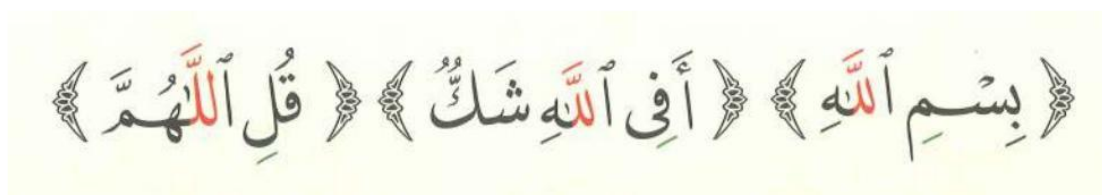 ﴿ بِسْمِ ٱللَّهِ ﴾ ﴿ أَفِى ٱللَّهِ شَكٌّ ﴾ ﴿ قُلِ ٱللَّهُمَّ ﴾